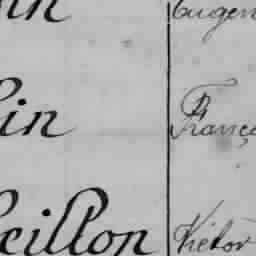 in Eugen
in França
eillon Victor